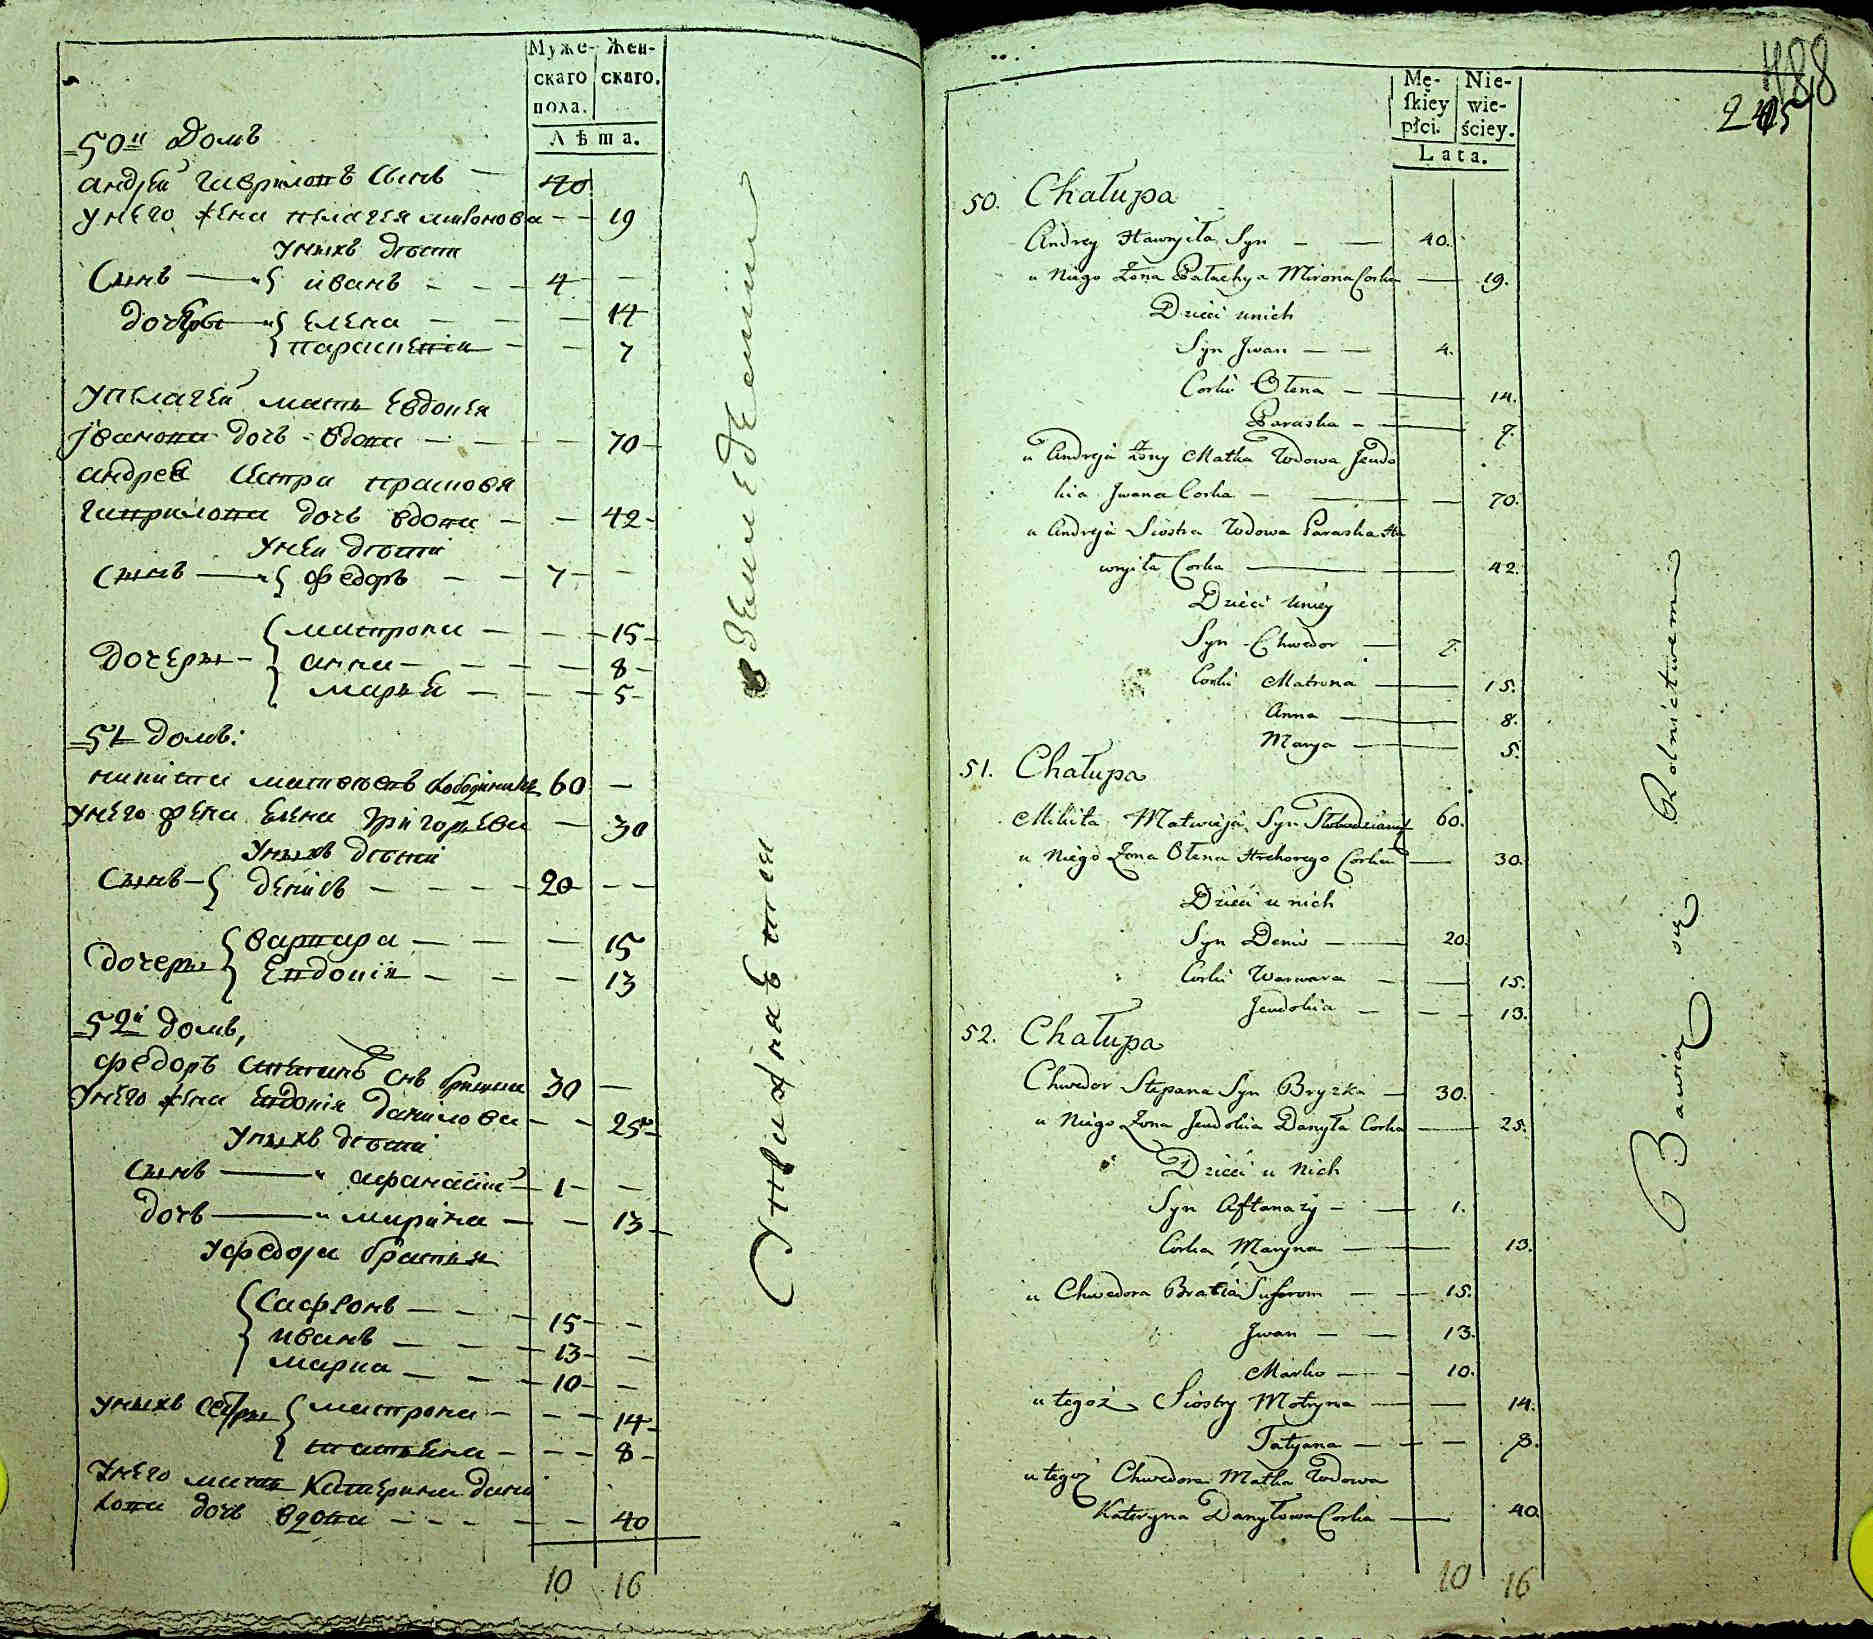 Муже- Жен-
скаго скаго.
пола.
Лѣта.
50й Домъ
андрей гавриловъ сынъ — 40
унего жена пелагея миронова — — 19
унихъ дѣти
Сынъ — иванъ — — — 4 —
дочери — елена — — — 14
параскевiя — — 7
упелагеи мать евдокея
иванова дочь вдова — — — 70
андрея сестра прасковя
гаврилова дочь вдова — — 42
унеи дѣти
сынъ — федоръ — — 7 —
матрона — — — 15
Дочеры — анна — — — 8
марья — — — 5
51 домъ:
никита матвѣевъ 60 —
унего жена елена григорьева — 30
унихъ дѣти
Сынъ — денисъ — — — — 20 — —
варвара — — — 15
дочеры
евдокiя — — — 13
52й домъ,
федоръ степанъ снъ 30 —
унего жена евдокiя данилова — — 25
унихъ дѣти
сынъ — афанасiй — 1 —
дочь — марина — — 13
уфедора братья
Сафронъ — — — 15 —
иванъ — — — 13 —
марка — — — 10 —
унихъ сестры матрона — — — 14
татьяна — — — 8
унего матка катерина дани
лова дочь вдова — — — — 40
10 16
Упражнаются в земледелии
488
245
Mę- Nie-
skiey wie-
płci. ściey.
Lata.
50. Chałupa
Andrey Hawryła Syn — — 40.
u Niego Żona Pałachya Mirona Corka — 19.
Dzieci unich
Syn Jwan — — 4.
Corki Ołena — — 14.
Paraska — — 7.
u Andreja Żony Matka Wdowa Jeudo
kia Jwana Corka — — — 70.
u Andreja Siostra Wdowa Paraska Ha
wryła Corka — — 42.
Dzieci Uniey
Syn Chwedor — 7.
Corki Matrona — 15.
Anna — — 8.
Marya — — 5.
51. Chałupa
Mikita Matwieja Syn 60.
u Niego Żona Ołena Hrehorego Corka — 30.
Dzieci u nich
Syn Denis — — 20.
Corki Warwara — — 15.
Jeudokia — — — 13.
52. Chałupa
Chwedor Stepana Syn Bryzka — 30.
u Niego Żona Jeudokia Danyła Corka — 25.
Dzieci u Nich
Syn Aftanazy — — 1.
Corka Maryna — — 13.
u Chwedora Bracia Suferom — — 15.
Jwan — — 13.
Marko — — 10.
u tegoż Siostry Motryna — — 14.
Tatyana — — — 8.
u tegoż Chwedora Matka Wdowa
Kateryna Danyłowa Corka — — 40.
10 16
Bawią się Rolnictwem